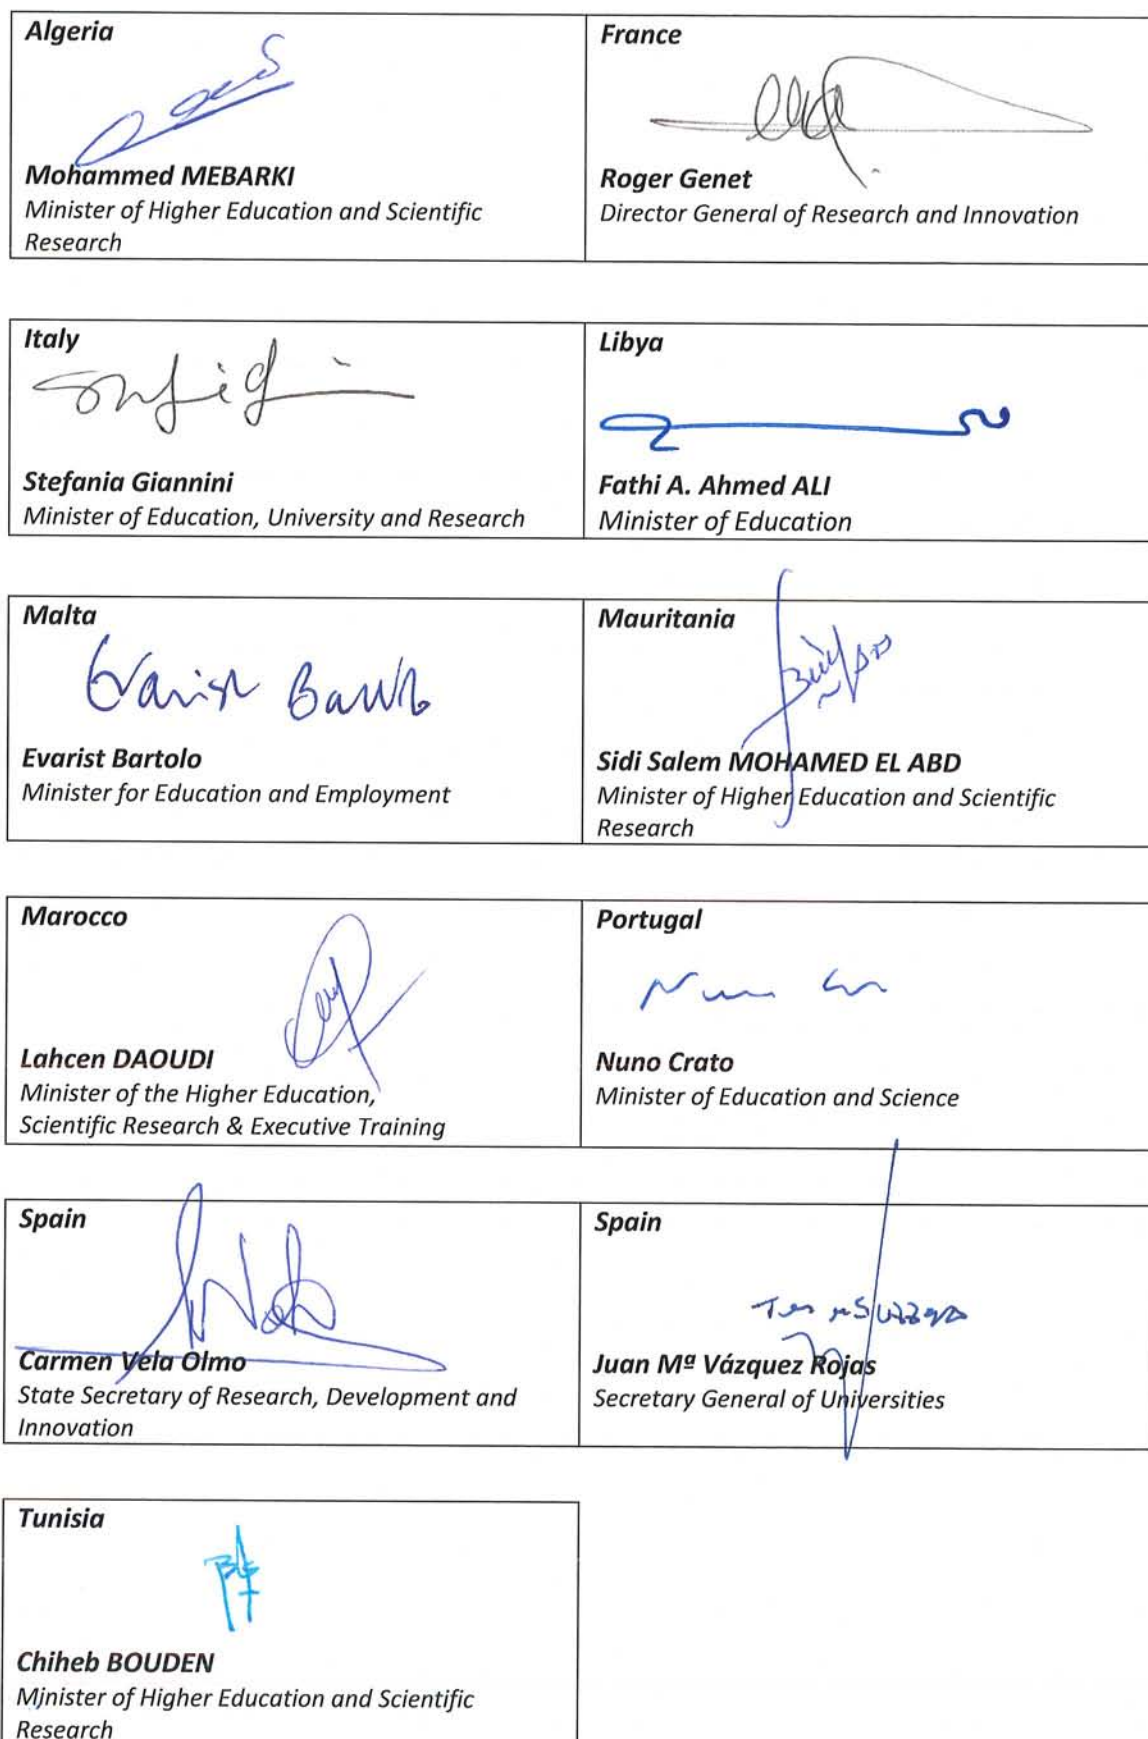 Algeria
Mohammed MEBARKI
Minister of Higher Education and Scientific
Research
France
Roger Genet
Director General of Research and Innovation
Italy
Stefania Giannini
Minister of Education, University and Research
Libya
Fathi A. Ahmed ALI
Minister of Education
Malta
Evarist Bartolo
Evarist Bartolo
Minister for Education and Employment
Mauritania
Sidi Salem MOHAMED EL ABD
Minister of Higher Education and Scientific
Research
Marocco
Lahcen DAOUDI
Minister of the Higher Education,
Scientific Research & Executive Training
Portugal
Nuno Crato
Minister of Education and Science
Spain
Carmen Vela Olmo
State Secretary of Research, Development and
Innovation
Spain
Juan Mª Vázquez Rojas
Secretary General of Universities
Tunisia
Chiheb BOUDEN
Minister of Higher Education and Scientific
Research